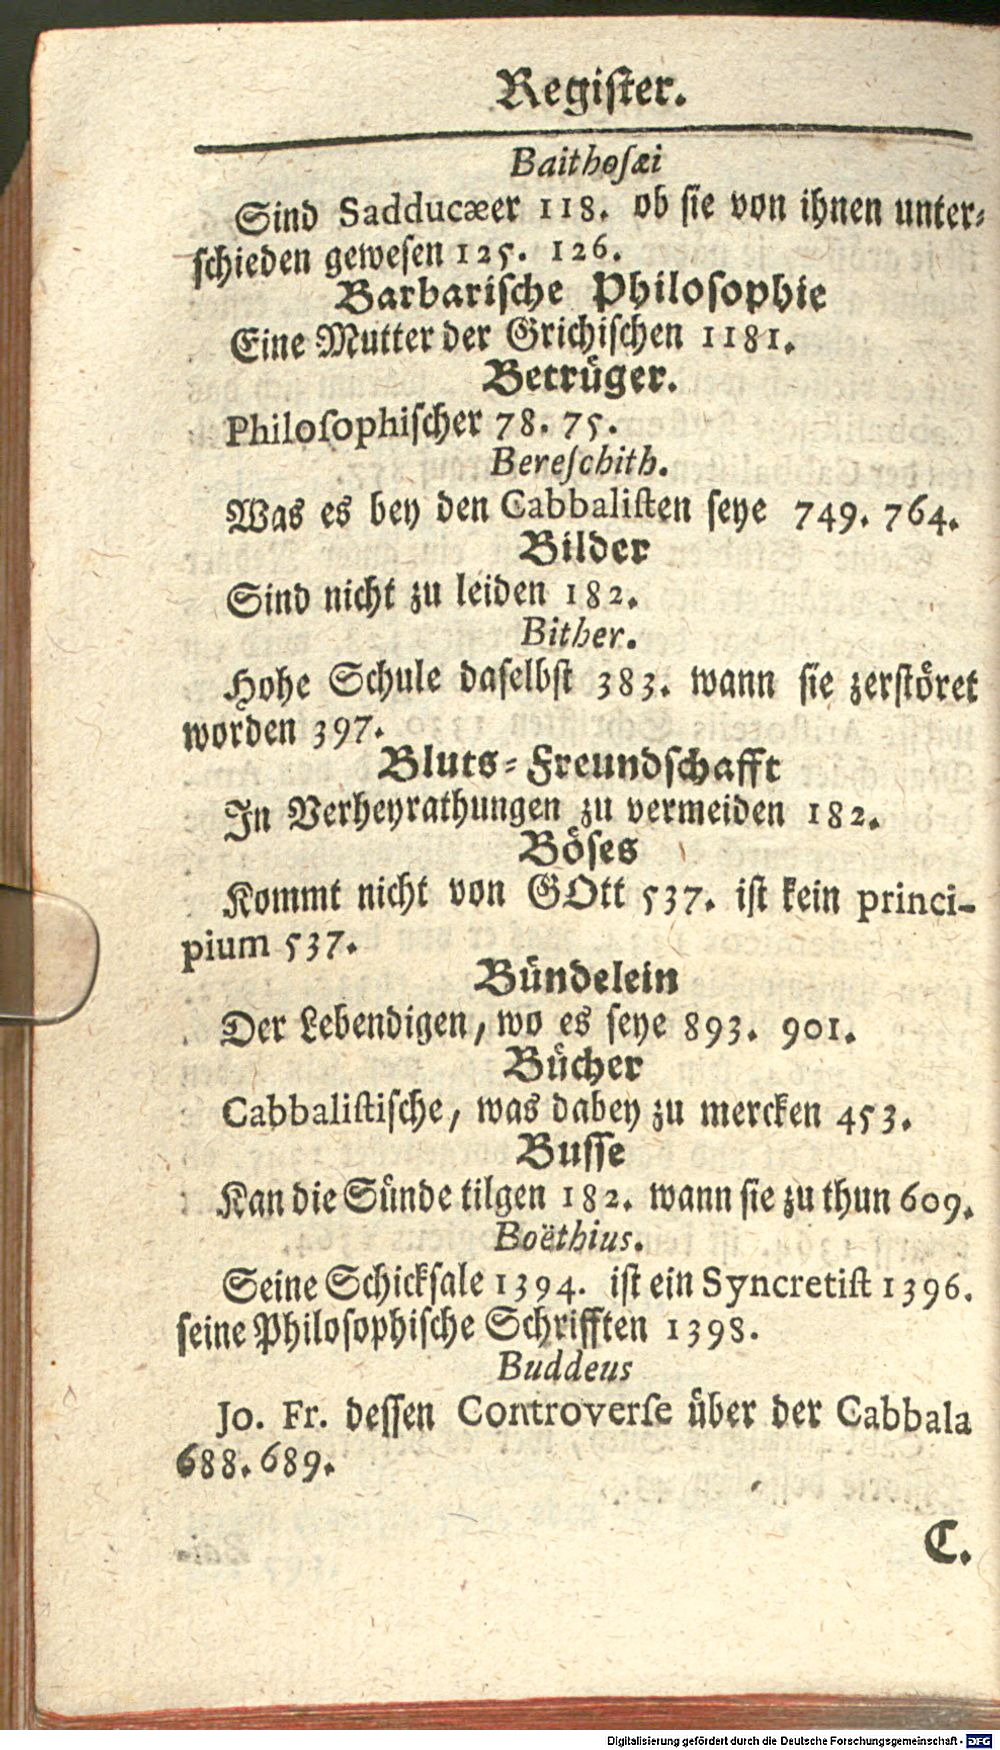 Regiſter.
Baithoſæi
Sind Sadducæer 118. ob ſie von ihnen unter⸗
ſchieden geweſen 125. 126.
Barbariſche Philoſophie
Eine Mutter der Grichiſchen 1181.
Betrüger.
Philoſophiſcher 78. 75.
Bereſchith.
Was es bey den Cabbaliſten ſeye 749. 764.
Bilder
Sind nicht zu leiden 182.
Bither.
Hohe Schule daſelbſt 383. wann ſie zerſtöret
worden 397.
Bluts⸗Freundſchafft
In Verheyrathungen zu vermeiden 182.
Böſes
Kommt nicht von GOtt 537. iſt kein princi-
pium 537.
Bündelein
Der Lebendigen, wo es ſeye 893. 901.
Bücher
Cabbaliſtiſche, was dabey zu mercken 453.
Buſſe
Kan die Sünde tilgen 182. wann ſie zu thun 609.
Boëthius.
Seine Schickſale 1394. iſt ein Syncretiſt 1396.
ſeine Philoſophiſche Schrifften 1398.
Buddeus
Jo. Fr. deſſen Controverſe über der Cabbala
688. 689.
C.
Digitalisierung gefördert durch die Deutsche Forschungsgemeinschaft - DFG